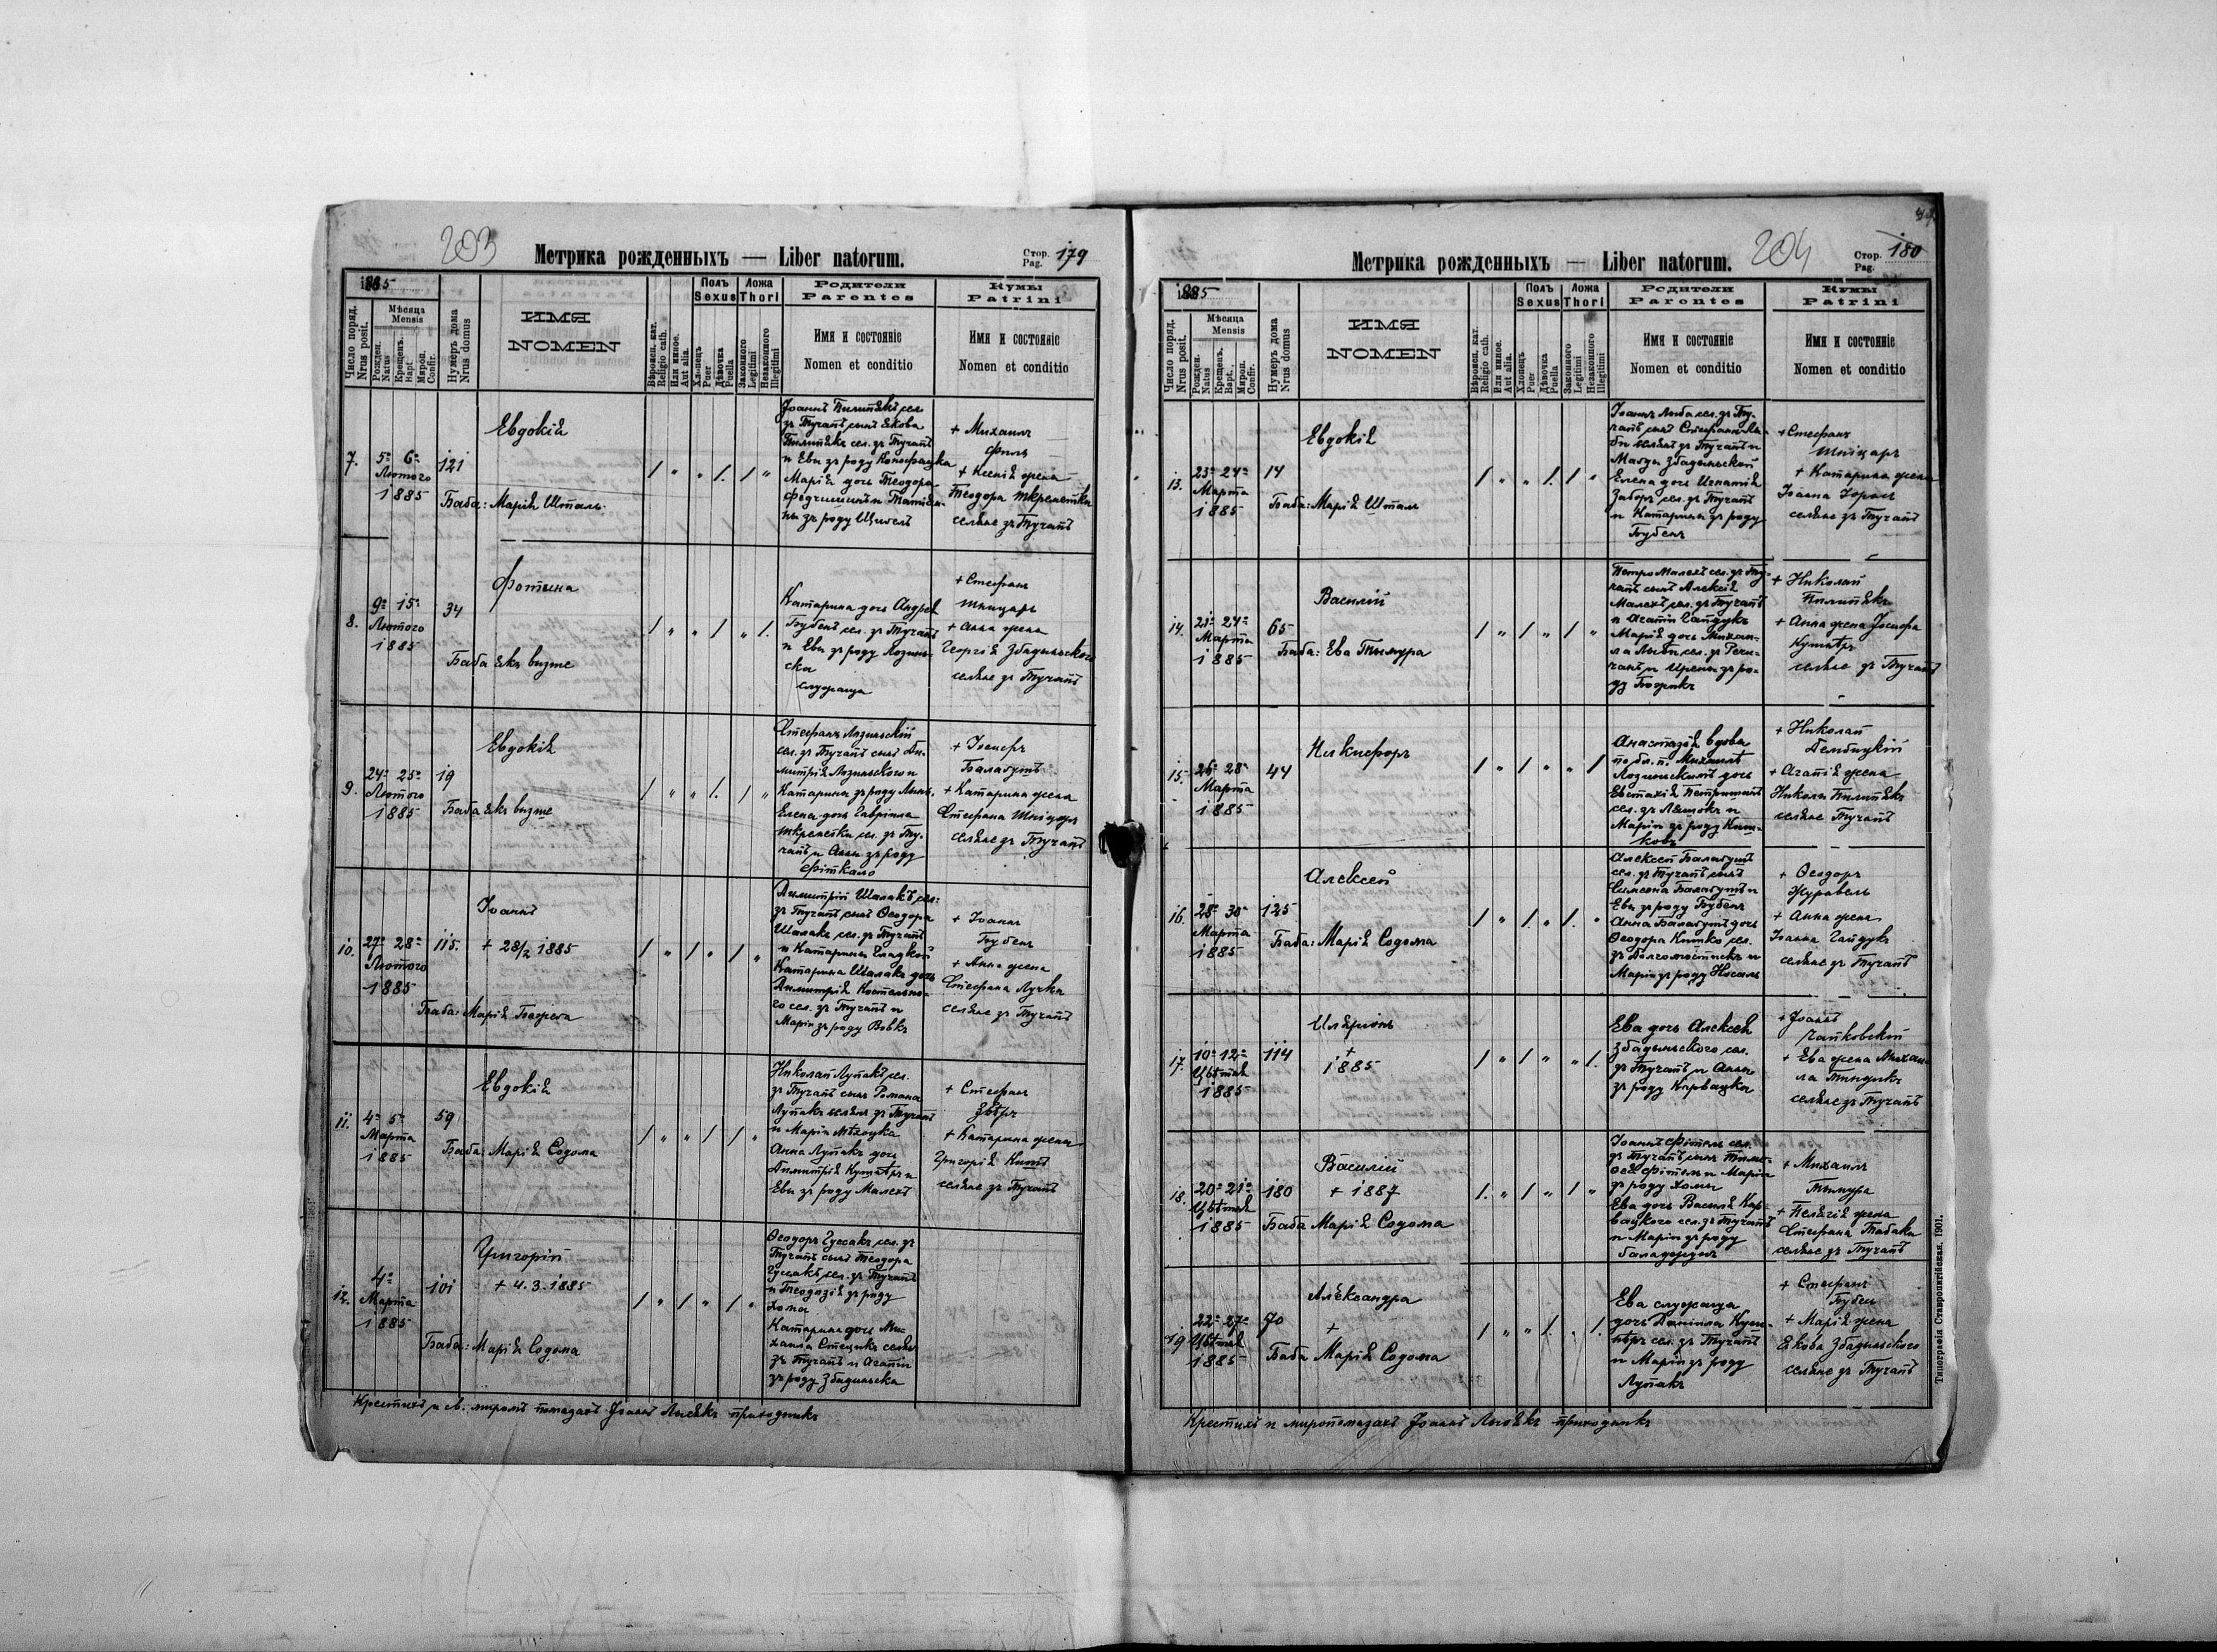 203
Метрика рожденныхъ — Liber natorum.
Стор. Pag. 179
1885
Число поряд. Nrus posit.
Мѣсяца Mensis
Рожден. Natus
Крещенъ. Bapt.
Мѵроп. Confir.
Нумеръ дома Nrus domus
ИМЯ
NOMEN
Вѣроисп. кат. Religio cath.
Или иное. Aut alia.
Полъ Sexus
Хлопецъ Puer
Дѣвочка Puella
Ложа Thori
Законного Legitimi
Незаконного Illegitimi
Родители
Parentes
Имя и состояніе
Nomen et conditio
Кумы
Patrini
Имя и состояніе
Nomen et conditio
7.
5го 6го
Лютого
1885
121
Евдокія
Баба: Марія Шталь
сел.
зъ Тучапъ сынъ Якова
сел. зъ Тучапъ
и Евы зъ роду
Марія дочь Теодора
и Татіа-
ны зъ роду
+ Михаилъ
Филь
+ Ксенія жена
Теодора
селяне зъ Тучапъ
8.
9го 15го
Лютого
1885
34
Фотина
Баба якъ визше
Катарина дочь Андрея
Бубенъ сел. зъ Тучапъ
и Евы зъ роду Лозинь-
ска
служаща
+ Стефанъ
Шницаръ
+ Анна жена
Георгія Збадыньского
селяне зъ Тучапъ
9.
24го 25го
Лютого
1885
19
Евдокія
Баба якъ визше
Стефанъ Лозиньскій
сел. зъ Тучапъ сынъ Ди-
митрія Лозиньского и
Катарины зъ роду
Елена дочь Гавріила
сел. зъ Ту-
чапъ и Анны зъ роду
Фіткало
+ Іосифъ
Балагутъ
+ Катарина жена
Стефана Шніцаръ
селяне зъ Тучапъ
10.
27го 28го
Лютого
1885
115.
Іоаннъ
+ 28/2 1885
Баба: Марія
Димитрій Шалакъ сел.
зъ Тучапъ сынъ Ѳеодора
Шалакъ сел. зъ Тучапъ
и Катарины Гладкой
Катарина Шалакъ дочь
Димитрія Костельно-
го сел. зъ Тучапъ и
Маріи зъ роду Вовкъ
+ Іоаннъ
Бубенъ
+ Анна жена
Стефана Лучка
селяне зъ Тучапъ
11.
4го 5го
Марта
1885
59
Евдокія
Баба: Марія Содома
Николай Лупакъ сел.
зъ Тучапъ сынъ Романа
Лупакъ селянъ зъ Тучапъ
и Маріи
Анна Лупакъ дочь
Димитрія и
Евы зъ роду Малехъ
+ Стефанъ
Звѣръ
+ Катарина жена
Григорія
селяне зъ Тучапъ
12.
4го
Марта
1885
101
Григорій
+ 4.3.1885
Баба: Марія Содома
Ѳеодоръ Гуссакъ сел. зъ
Тучапъ сынъ Теодора
Гуссакъ сел. зъ Тучапъ
и Теодозія зъ роду
Хома
Катарина дочь Ми-
хаила Стецикъ селян.
зъ Тучапъ и Агапіи
зъ роду Збадыньска
Крестилъ и св. миромъ помазалъ Іоаннъ приходникъ
204
Метрика рожденныхъ — Liber natorum.
Стор. Pag. 180
1885
Число поряд. Nrus posit.
Мѣсяца Mensis
Рожден. Natus
Крещенъ. Bapt.
Мѵроп. Confir.
Нумеръ дома Nrus domus
ИМЯ
NOMEN
Вѣроисп. кат. Religio cath.
Или иное. Aut alia.
Полъ Sexus
Хлопецъ Puer
Дѣвочка Puella
Ложа Thori
Законного Legitimi
Незаконного Illegitimi
Родители
Parentes
Имя и состояніе
Nomen et conditio
Кумы
Patrini
Имя и состояніе
Nomen et conditio
13.
23го 24го
Марта
1885
14
Евдокія
Баба: Марія Шталь
Іоаннъ Люба сел. зъ Ту-
чапъ сынъ Стефана Лю-
бы селянъ зъ Тучапъ и
Магды Збадыньской
Елена дочь Игнатія
сел. зъ Тучапъ
и Катарины зъ роду
Бубенъ
+ Стефанъ
Шніцаръ
+ Катарина жена
Іоанна
селяне зъ Тучапъ
14.
23го 24го
Марта
1885
65
Василій
Баба: Ева Тимура
Петро Малехъ сел. зъ Ту-
чапъ сынъ Алексія
Малехъ сел. зъ Тучапъ
и Агапіи Гайдукъ
Марія дочь Михаи-
ла сел. зъ Речи-
чанъ и Ирены зъ ро-
ду
+ Николай
+ Анна жена Іосифа
селяне зъ Тучапъ
15.
26го 28го
Марта
1885
44
Никифоръ
Анастазія вдова
по бл. п. Михаилѣ
Лозиньскимъ дочь
Евстахія
сел. зъ и
Маріи зъ роду
+ Николай
Дембицкій
+ Агапія жена
Николы
селяне Тучапъ
16.
28го 30го
Марта
1885
125
Алексей
Баба: Марія Содома
Алексей Балагутъ
сел. зъ Тучапъ сынъ
Симеона Балагутъ и
Евы зъ роду Бубенъ
Анна Балагутъ дочь
Ѳеодора Китко сел.
зъ Долгомостискъ и
Маріи зъ роду Носаль
+ Ѳеодоръ
Журавель
+ Анна жена
Іоанна Гайдукъ
селяне зъ Тучапъ
17.
10го 12го
Цвѣтня
1885
114
Иляріонъ
+
1885
Ева дочь Алексея
Збадыньского сел.
зъ Тучапъ и Анны
зъ роду Карвацка
+ Іоаннъ
Чайковскій
+ Ева жена Михаи-
ла
селяне зъ Тучапъ
18.
20го 21го
Цвѣтня
1885
180
Василій
+ 1887
Баба Марія Содома
Іоаннъ Фітель сел.
зъ Тучапъ сынъ Тимо-
ѳея Фітель и Маріи
зъ роду Хомы
Ева дочь Василя Кар-
вацкого сел. зъ Тучапъ
и Маріи зъ роду
+ Михаилъ
Тимура
+ Пелагія жена
Стефана Табаки
селяне зъ Тучапъ
19
22го 27го
Цвѣтня
1885
70
Александра
+
Баба Марія Содома
Ева служаща
дочь Даніила
сел. зъ Тучапъ
и Маріи зъ роду
Лупакъ
+ Стефанъ
Бубен
+ Марія жена
Якова Збадыньского
селяне зъ Тучапъ
Крестилъ и миропомазалъ Іоаннъ приходникъ
Типографія Ставропигійская. 1901.